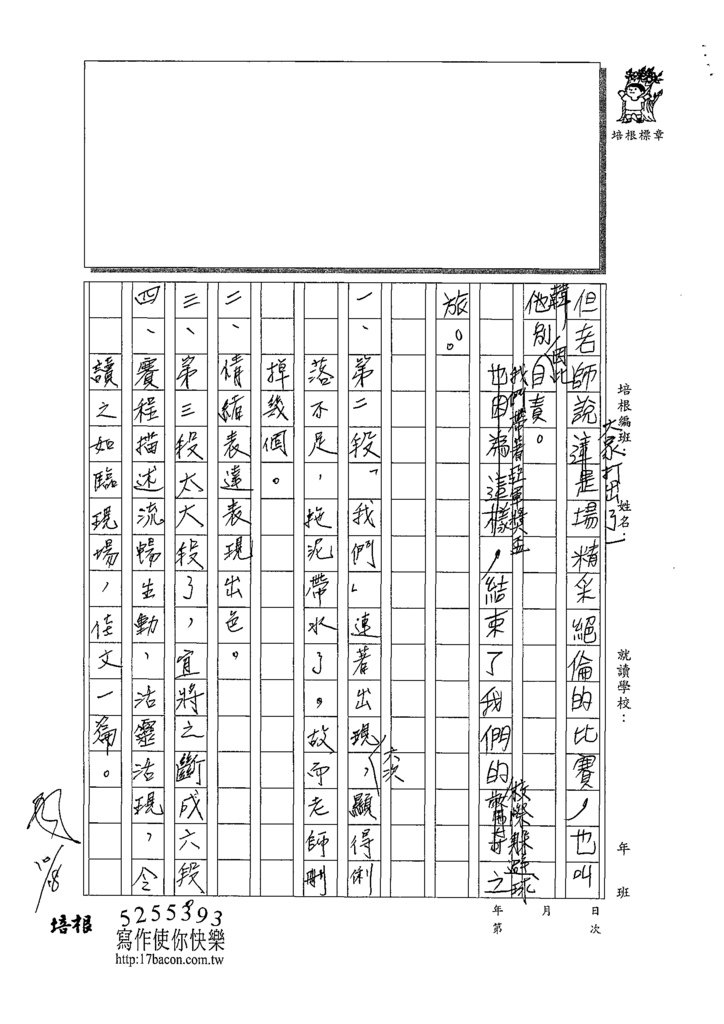 培根標章
培根編班：
姓名：
就讀學校：
年
班
日
次
月
年
第
大家打出了
但老師說這是場精采絕倫的比賽，也叫
他別自責。
因此
我們帶著亞軍獎盃
也因為這樣，結束了我們的
之
校際躲避球
旅。
一、第二段「我們」連著出現，顯得俐
六次
落不足，拖泥帶水了。故而老師刪
掉幾個。
二、情緒表達表現出色。
三、第三段太大段了，宜將之斷成六段
四、賽程描述流暢生動，活靈活現，令
讀之如臨現場，佳文一篇。
10/8
培根
5255393
寫作使你快樂
http:17bacon.com.tw